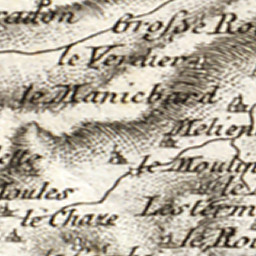 Grosse Ro
le Verdier
le Manichard
Melien
le Moulin
Moules
le
le Chare
Lesterm
le Rou